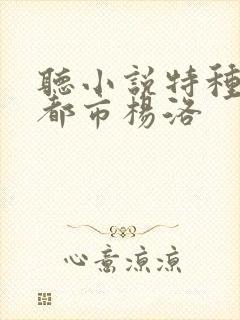 聽小說特種
都市楊洛
心意涼涼